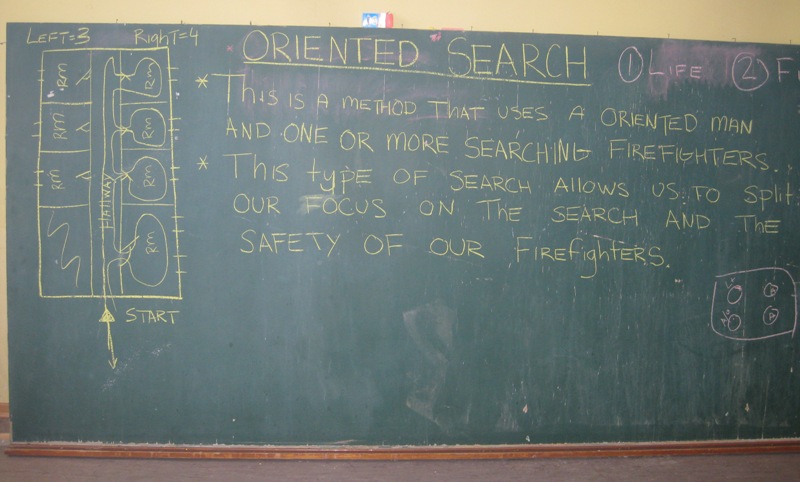 LEFT=3 RIGHT=4
ORIENTED SEARCH
① LIFE ② F
* THIS IS A METHOD THAT USES A ORIENTED MAN
AND ONE OR MORE SEARCHING FIREFIGHTERS.
* THIS TYPE OF SEARCH ALLOWS US TO SPLIT
OUR FOCUS ON THE SEARCH AND THE
SAFETY OF OUR FIREFIGHTERS.
RM RM
RM RM
RM RM
RM
HALLWAY
START